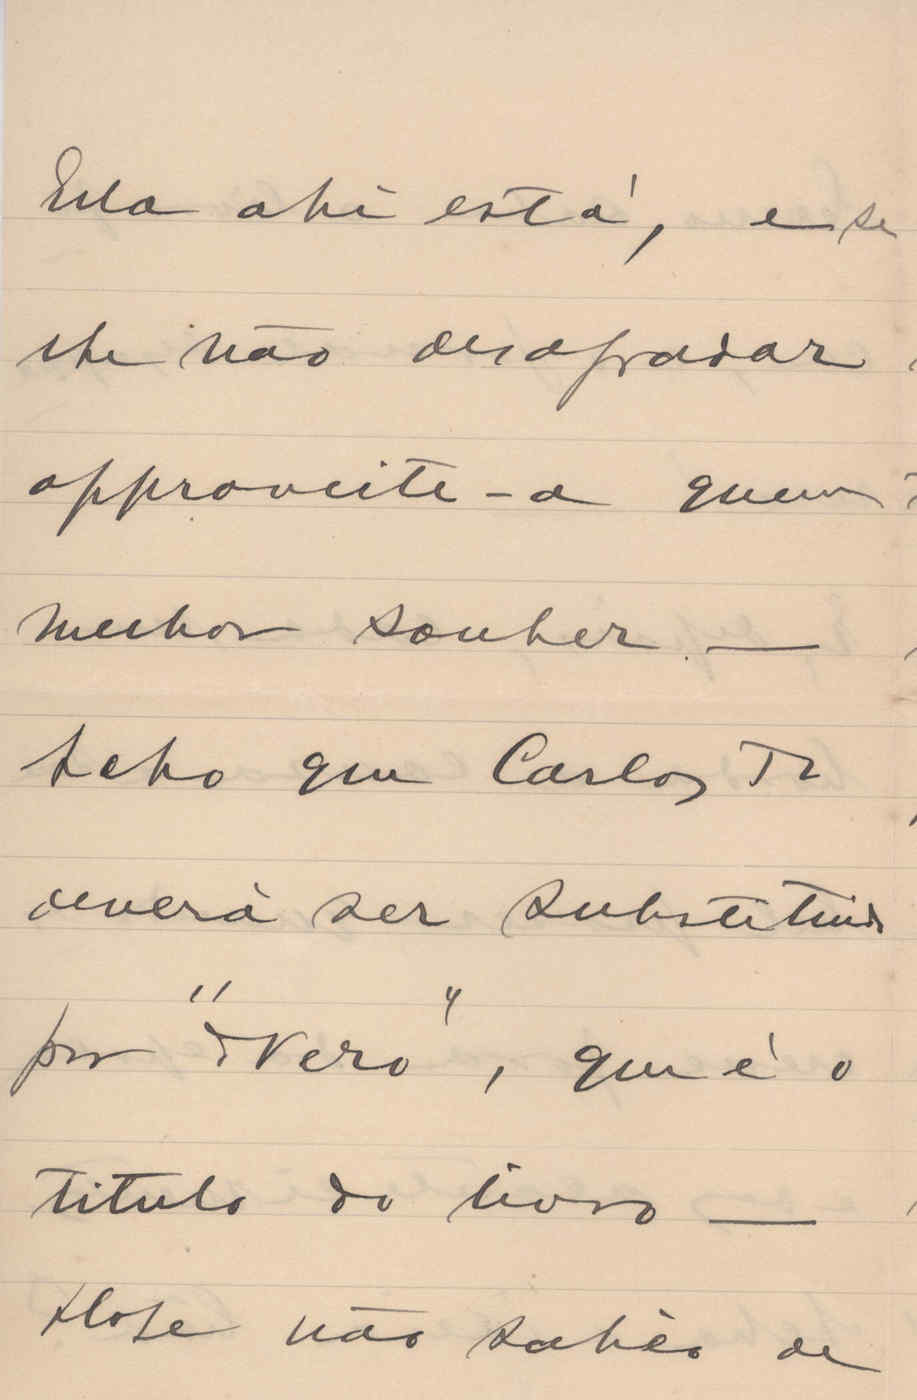 Ella ahi está, e se
lhe não desagradar
approveite-a quem
melhor souber. —
Acho que Carlos Tr
deverá ser substituido
por "d Nero", que é o
titulo do livro —
Hoje não sahio de